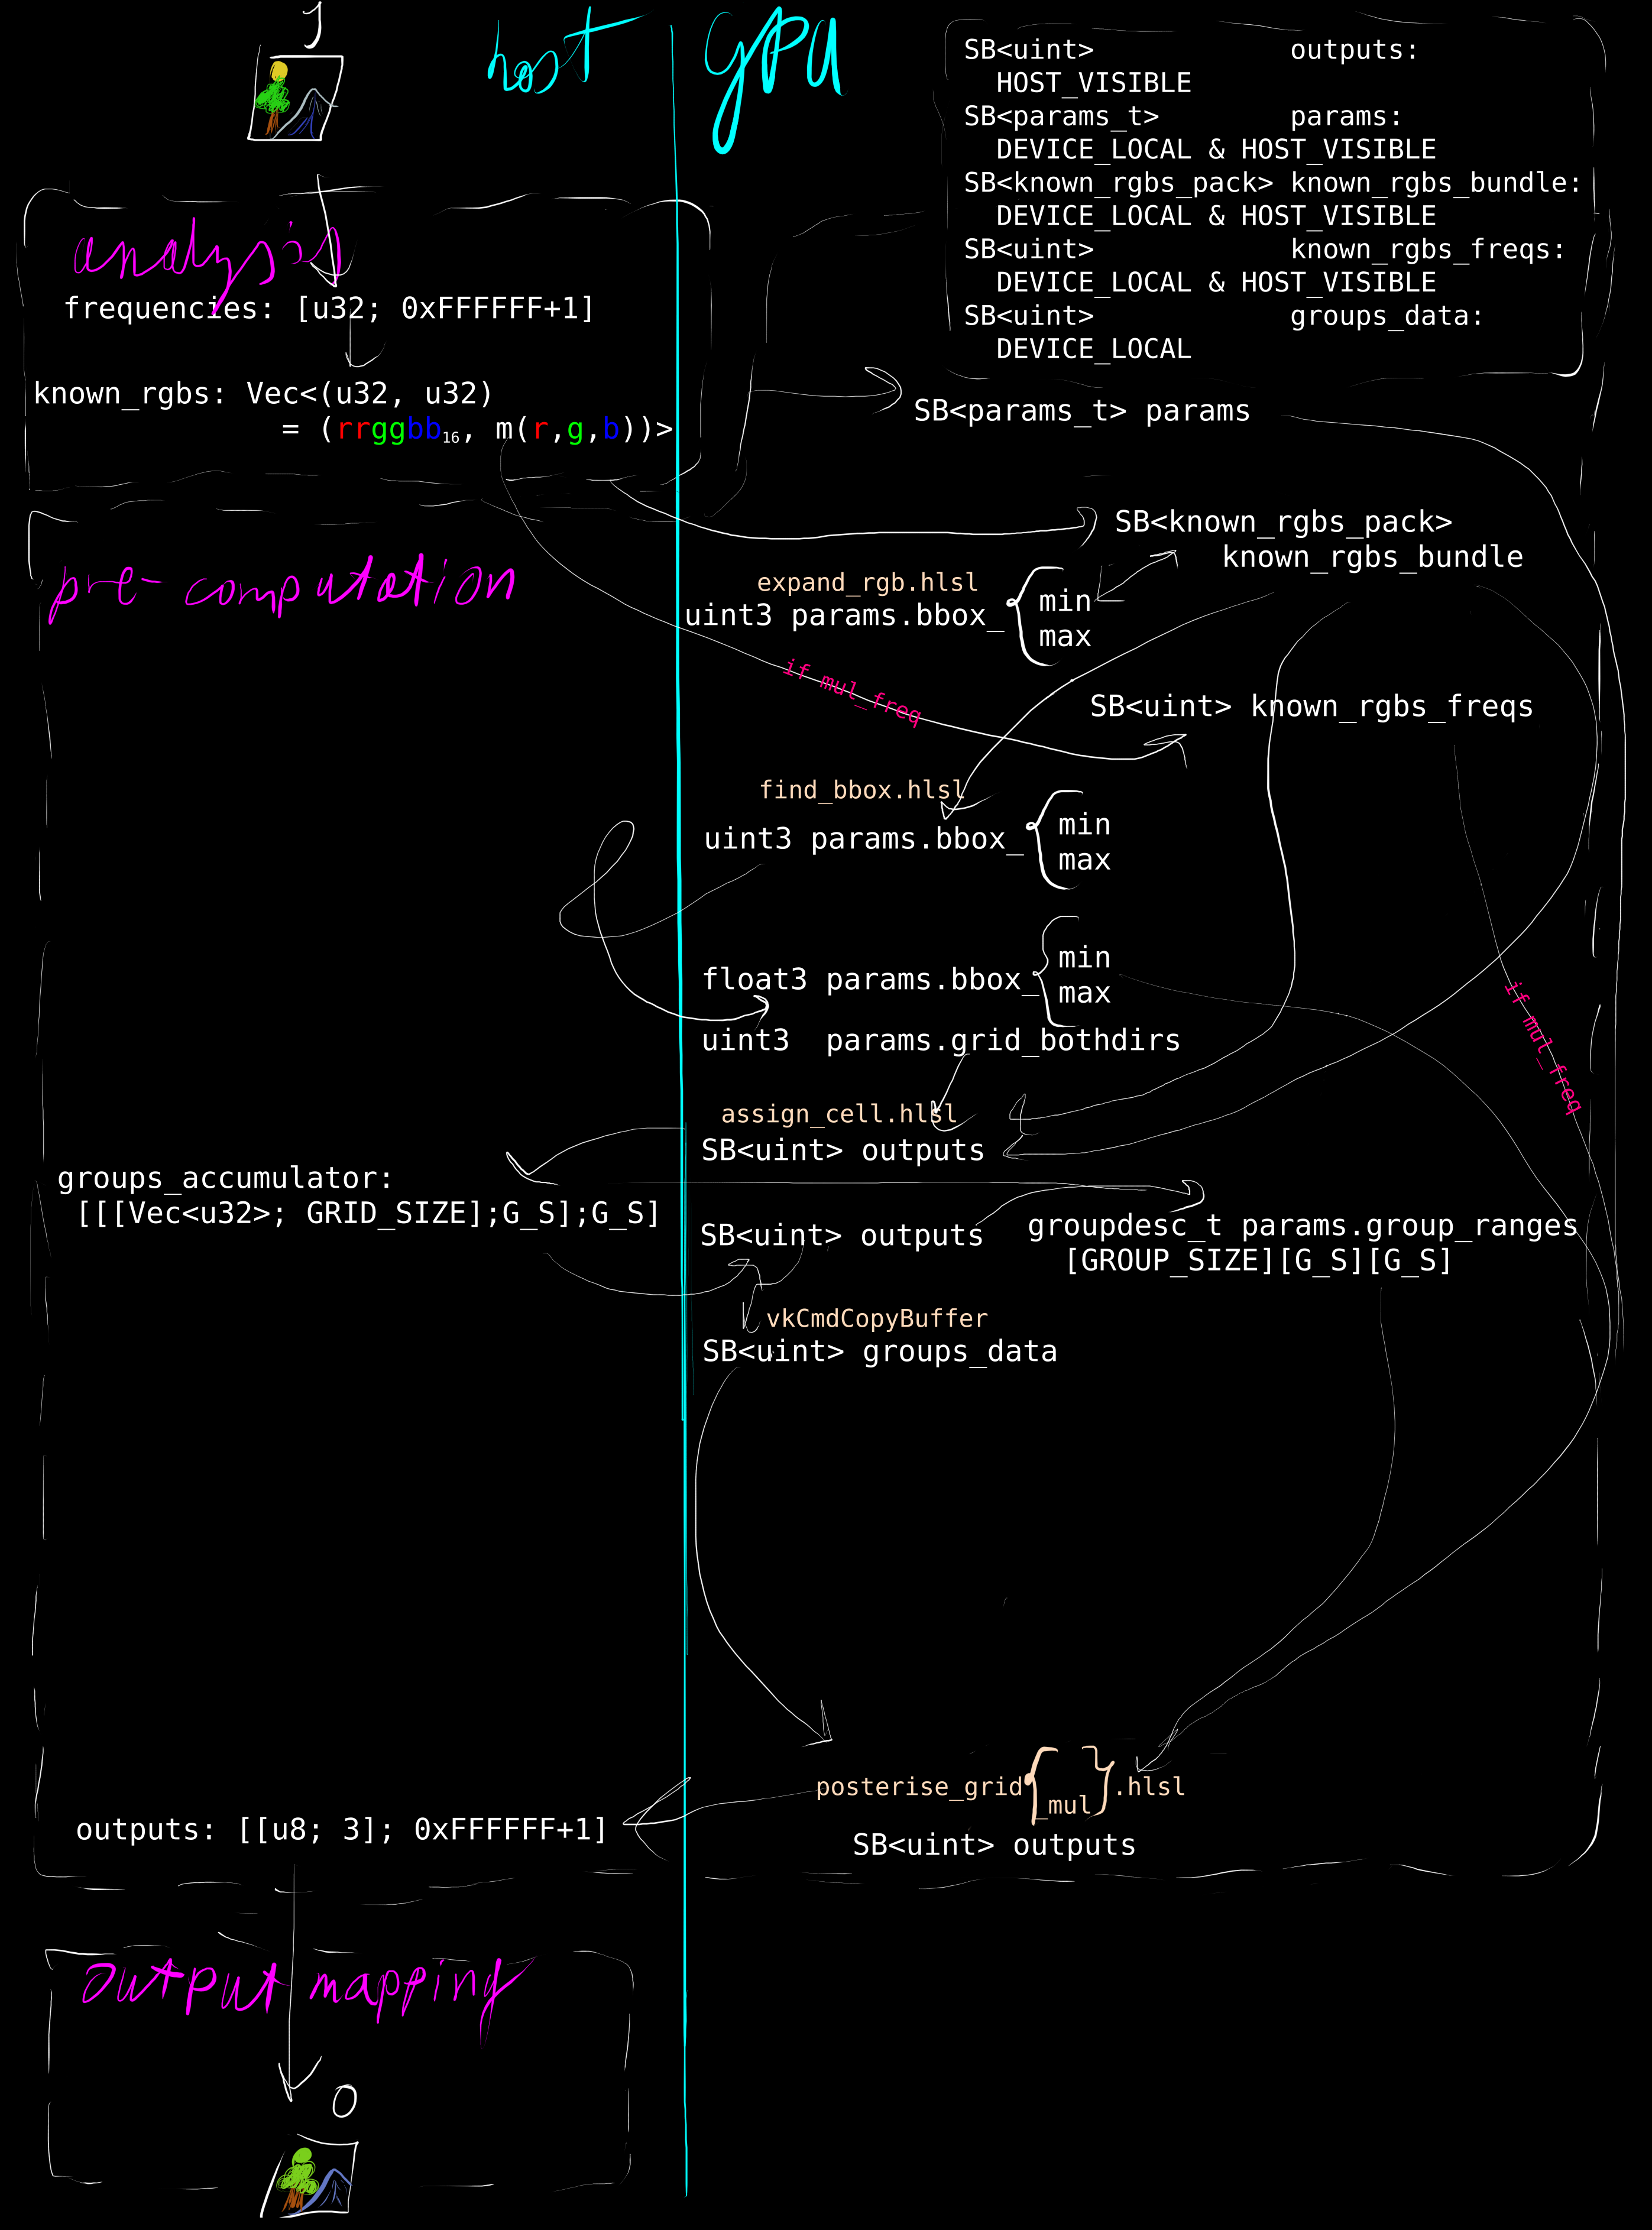 I
host
gpu
SB<uint> outputs:
HOST_VISIBLE
SB<params_t> params:
DEVICE_LOCAL & HOST_VISIBLE
SB<known_rgbs_pack> known_rgbs_bundle:
DEVICE_LOCAL & HOST_VISIBLE
SB<uint> known_rgbs_freqs:
DEVICE_LOCAL & HOST_VISIBLE
SB<uint> groups_data:
DEVICE_LOCAL
analysis
frequencies: [u32; 0xFFFFFF+1]
known_rgbs: Vec<(u32, u32)
= (rrggbb₁₆, m(r,g,b))>
SB<params_t> params
pre-computation
SB<known_rgbs_pack>
known_rgbs_bundle
expand_rgb.hlsl
uint3 params.bbox_{
min
max
if mul_freq
SB<uint> known_rgbs_freqs
find_bbox.hlsl
uint3 params.bbox_{
min
max
float3 params.bbox_{
min
max
uint3 params.grid_bothdirs
if mul_freq
assign_cell.hlsl
SB<uint> outputs
groups_accumulator:
[[[Vec<u32>; GRID_SIZE];G_S];G_S]
SB<uint> outputs
groupdesc_t params.group_ranges
[GROUP_SIZE][G_S][G_S]
vkCmdCopyBuffer
SB<uint> groups_data
posterise_grid{_mul}.hlsl
outputs: [[u8; 3]; 0xFFFFFF+1]
SB<uint> outputs
output mapping
O